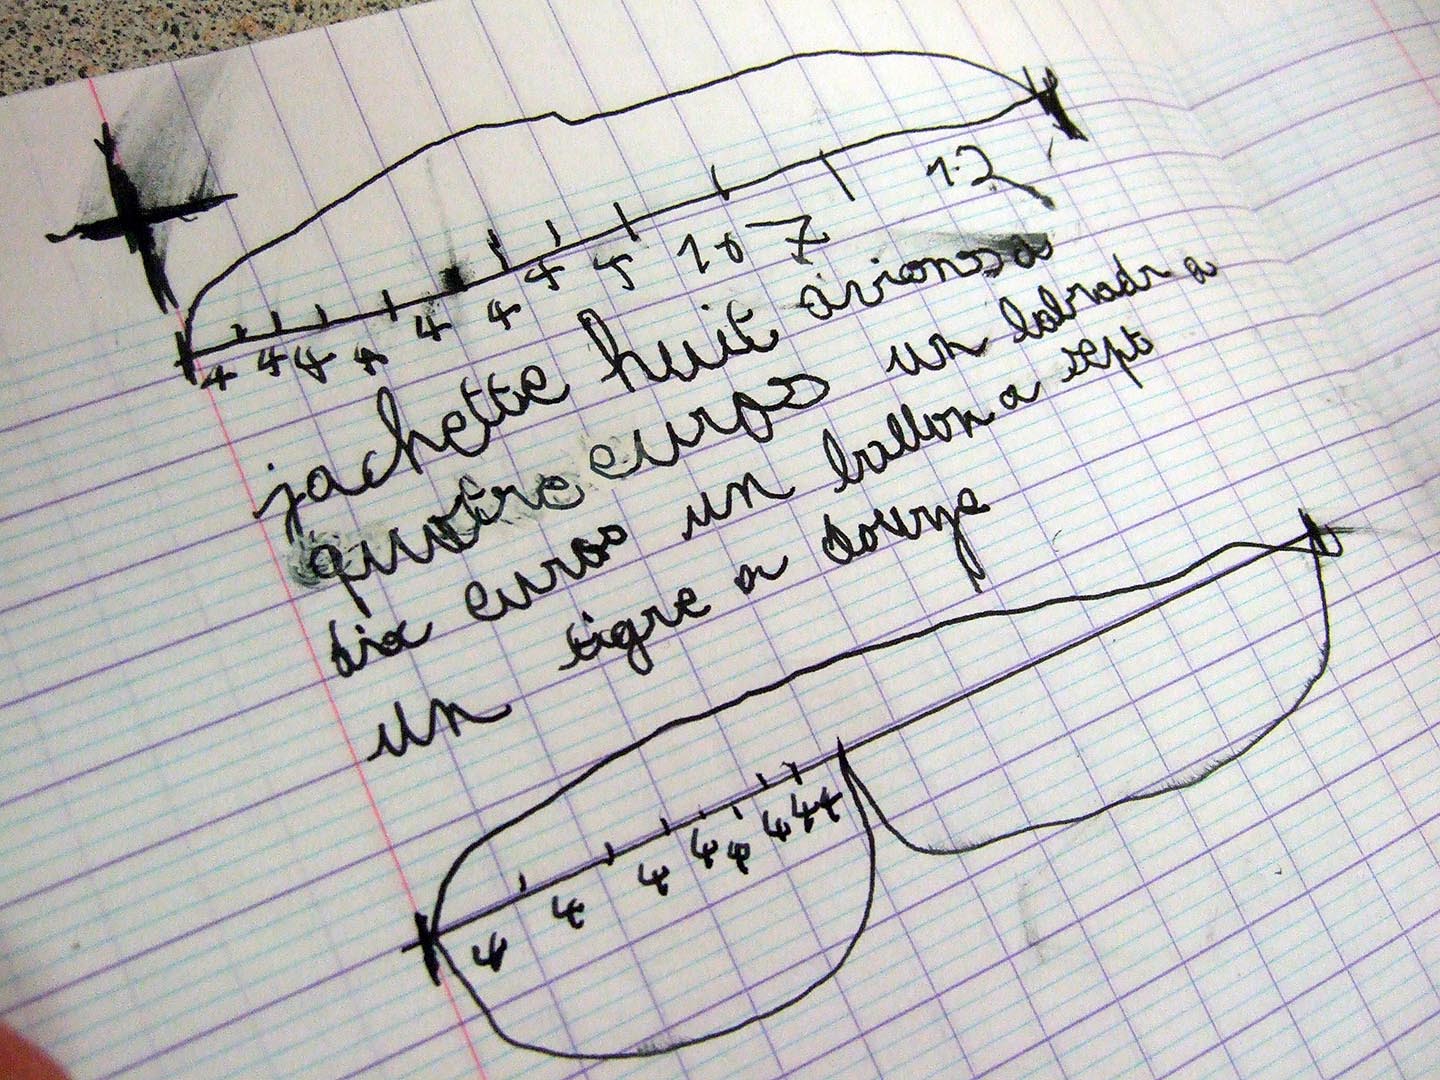 4 4 4 4 4 4 4 5 10 7 12
jachette huit avions a
quatre euros un labradr a
dix euros un ballon a sept
un tigre a douze
4 4 4 4 4 4 4 4